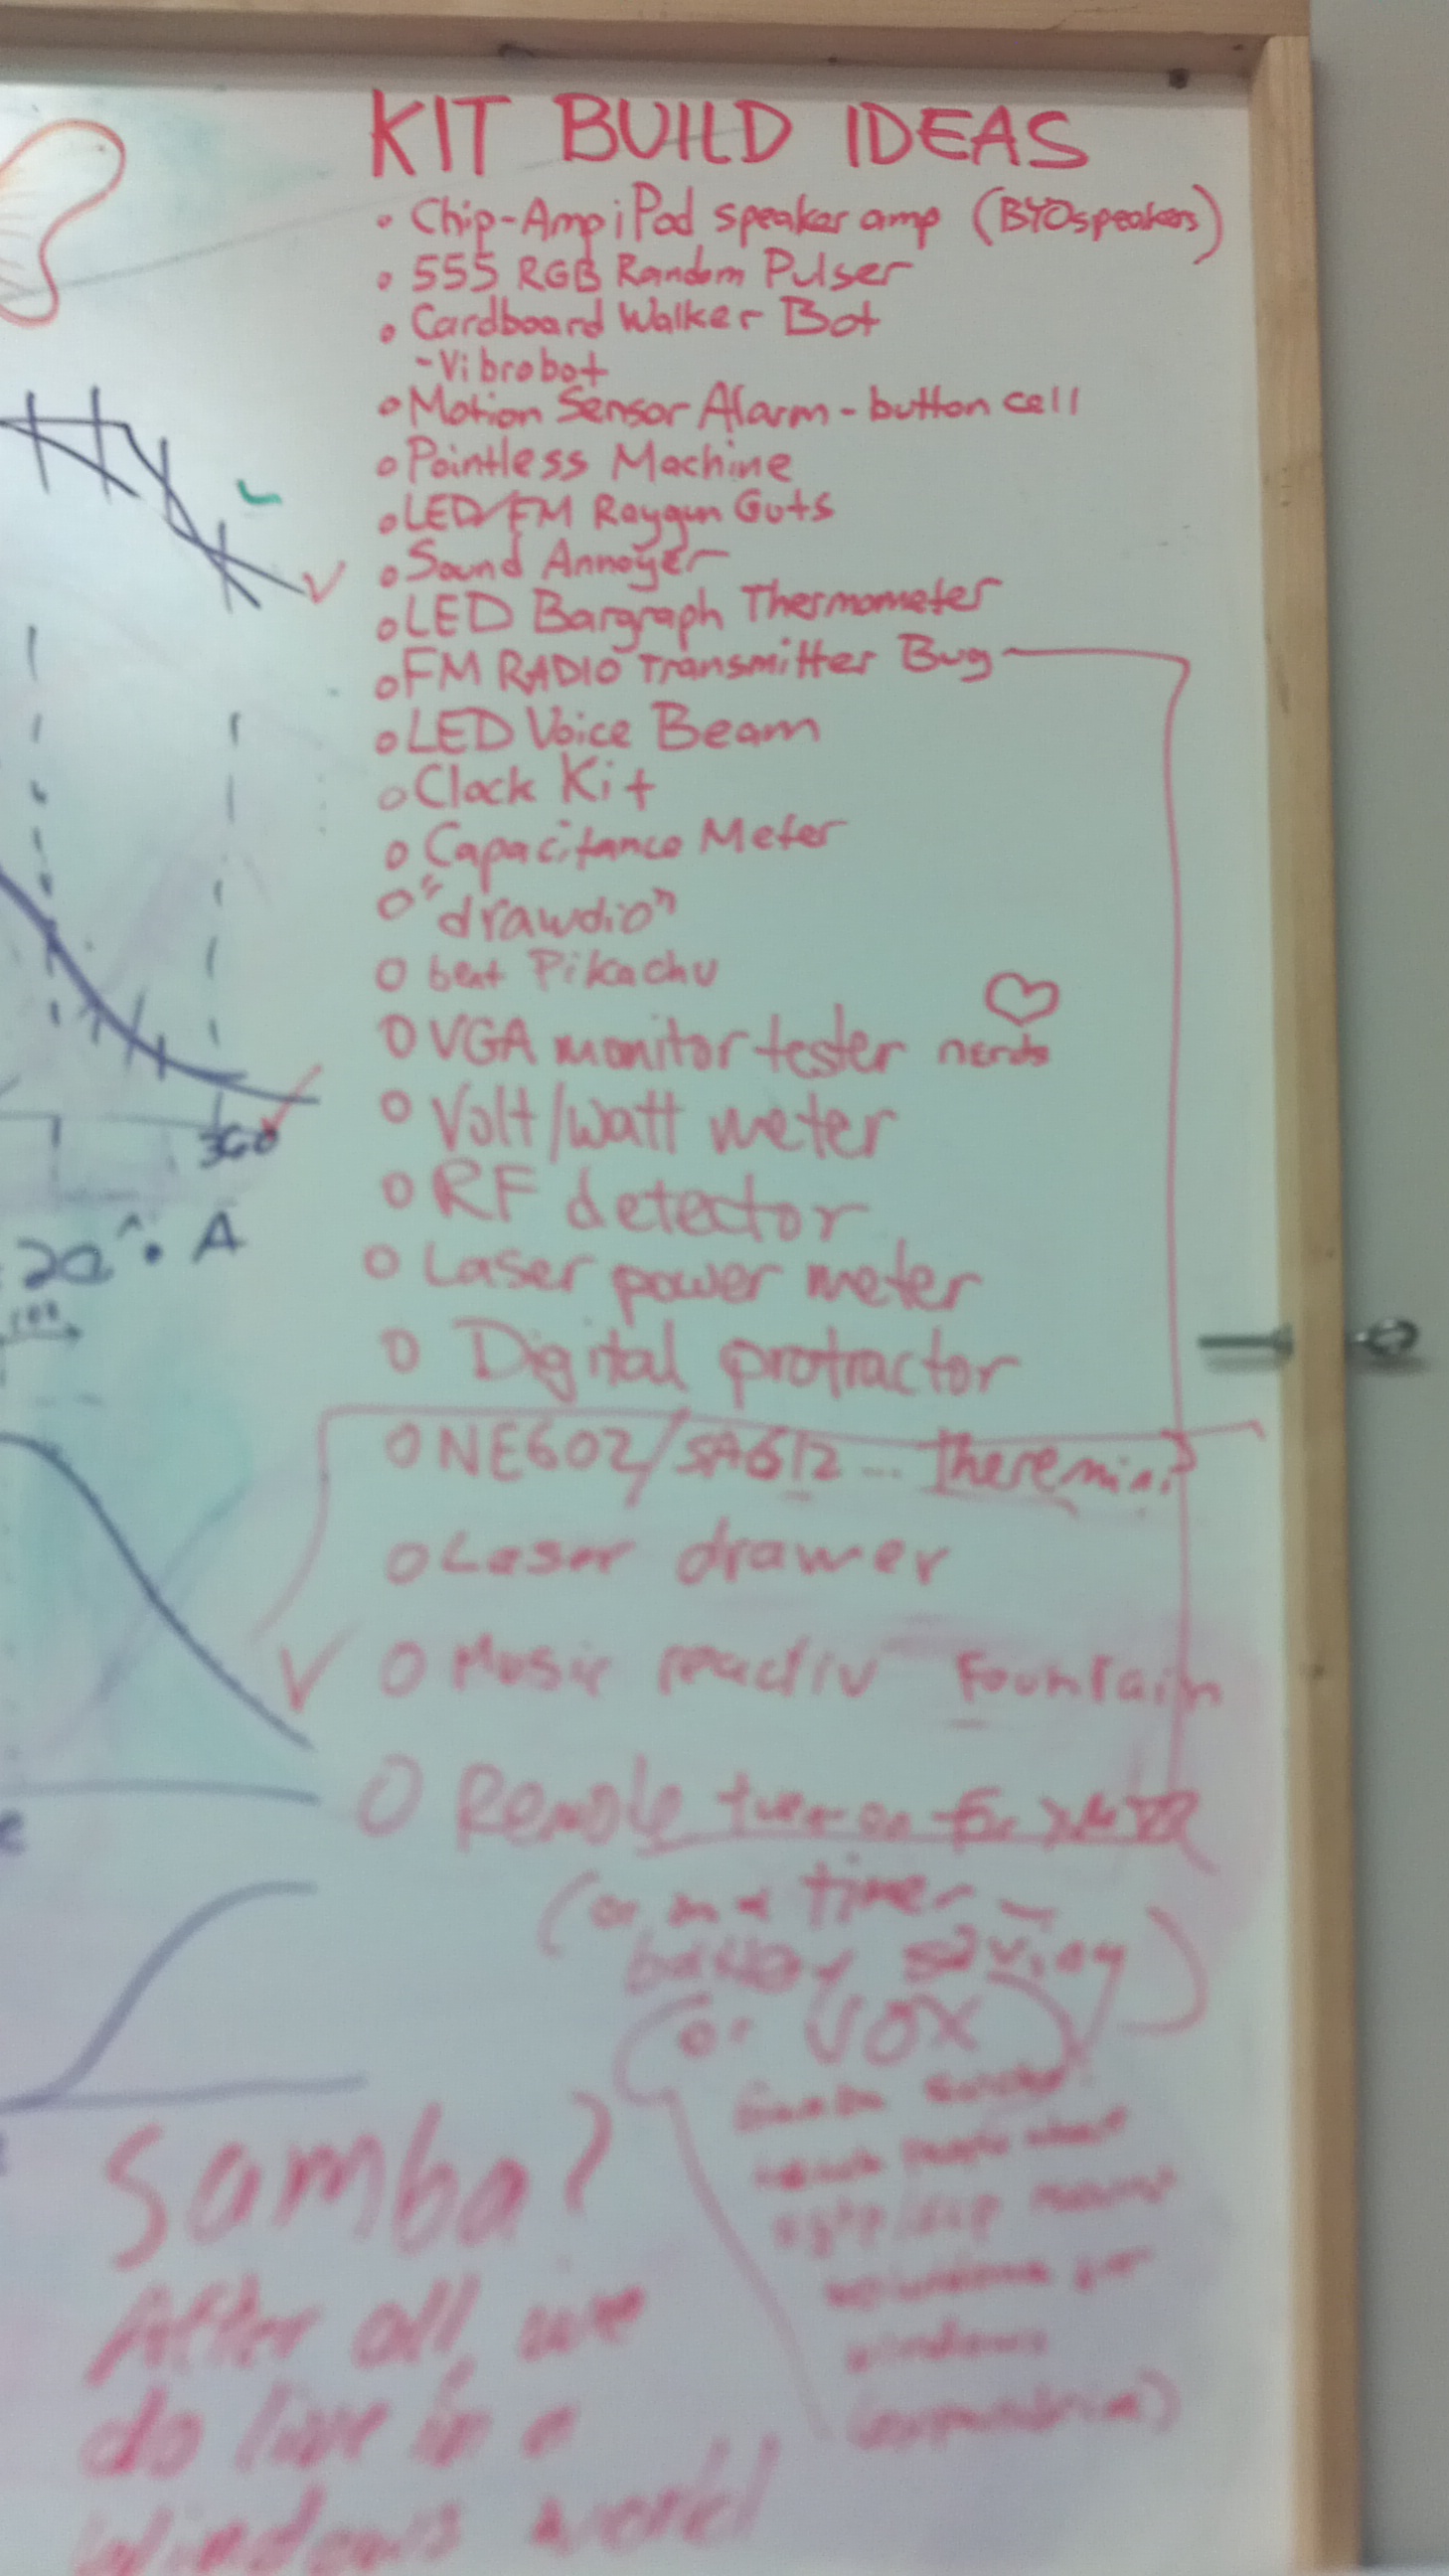 KIT BUILD IDEAS
• Chip-Amp iPod speaker amp (BYOspeakers)
• 555 RGB Random Pulser
• Cardboard Walker Bot
- Vibrobot
• Motion Sensor Alarm - button cell
• Pointless Machine
• LED/FM Raygun Guts
• Sound Annoyer
• LED Bargraph Thermometer
• FM RADIO Transmitter Bug
• LED Voice Beam
• Clock Kit
• Capacitance Meter
• "drawdio"
• bent Pikachu
• VGA monitor tester nerds
• Volt/watt meter
360
• RF detector
20 • A
• Laser power meter
• Digital protractor
• NE602/SA612 ... Theremin?
• Laser drawer
• Music reactiv Fountain
• Remote turn on for XMTR
(or on a timer -
battery saving)
or VOX
Samba?
After all, we
do live in a
Windows world